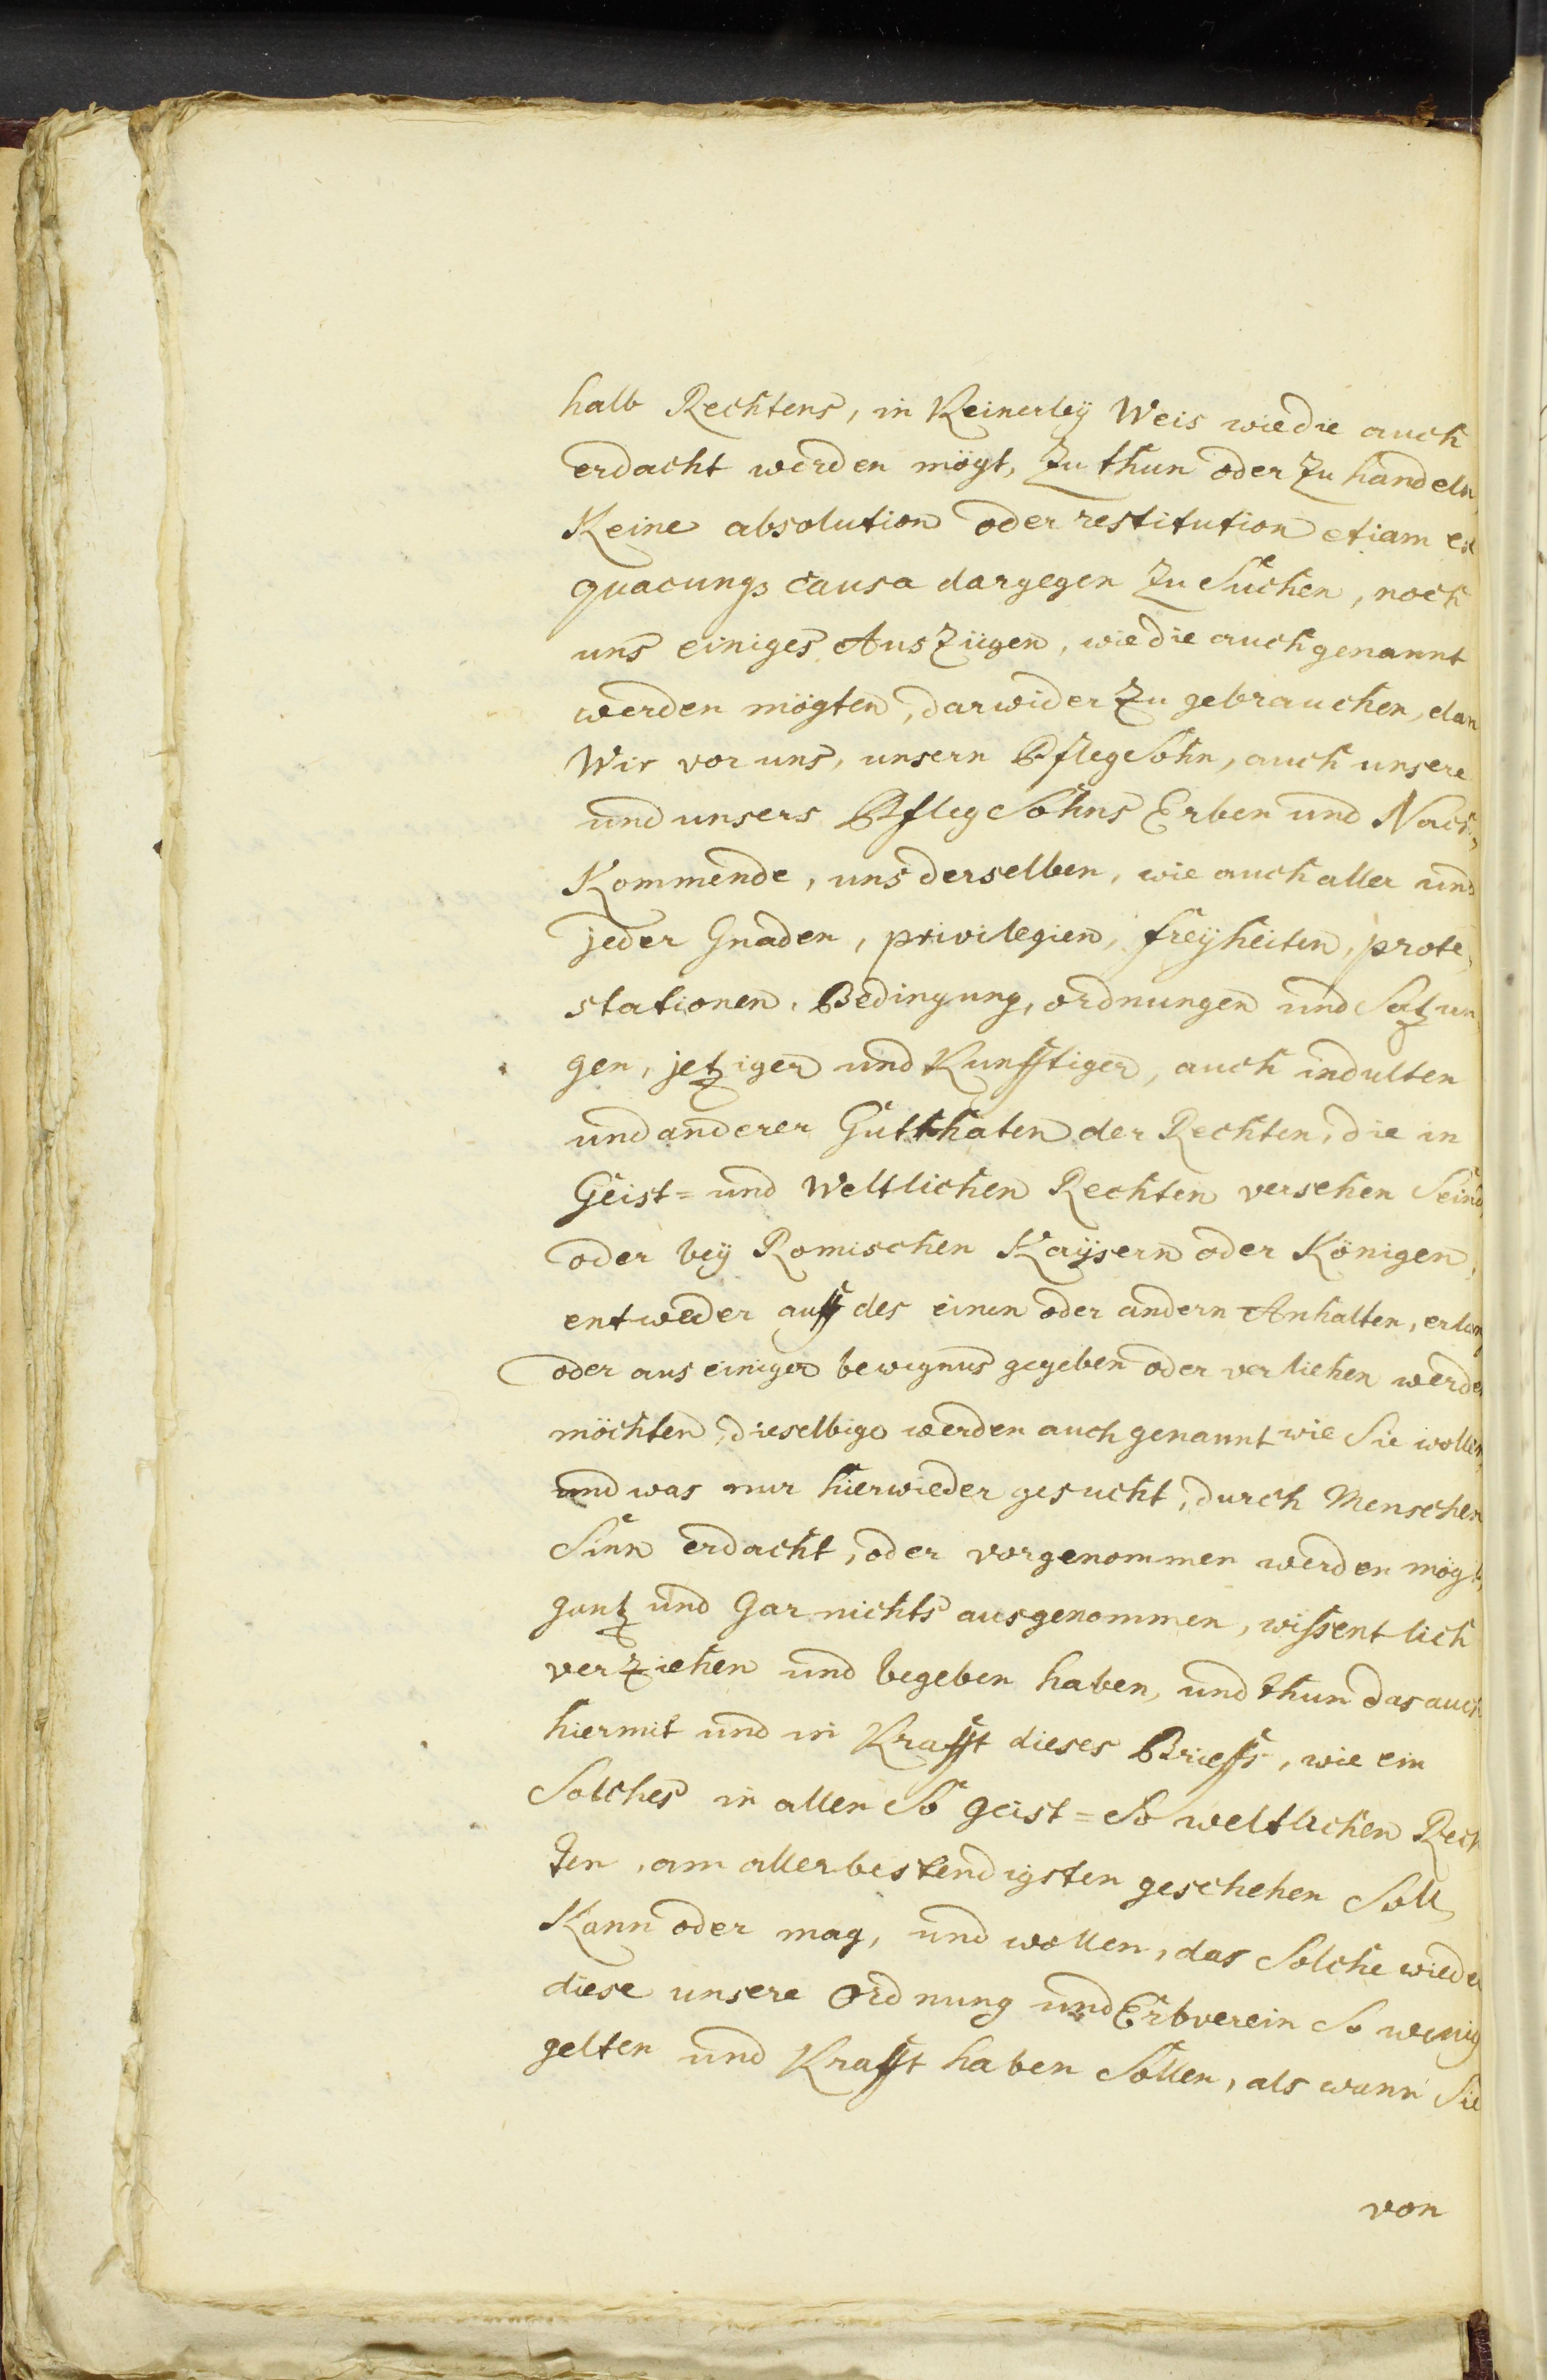 halb Rechtens, in Keinerley Weis wie die auch
erdacht werden mögt, zu thun oder zu handeln,
Keine absolution oder restitution etiam ex
quacunqȝ causa dargegen zu Suchen, noch
uns einiges Auszügen, wie die auch genannt
werden mögten, darwider zu gebrauchen, dan
Wir vor uns, unsern PflegSohn, auch unsere
und unsers PflegSohns Erben und Nach,
Kommende, uns derselben, wie auch aller und
jeder Gnaden, privilegien, freyheiten, prote,
stationen, Bedingung, ordnungen und Satzun
gen, jetziger und Kunfftiger, auch indulten
und anderer Gutthaten der Rechten, die in
Geist= und Weltlichen Rechten versehen Seind,
oder bey Romischen Kaysern oder Königen,
entweder auff des einen oder andern Anhalten, erlang
oder aus einiger bewegnus gegeben oder verliehen werden
möchten, dieselbige werden auch genannt wie Sie wollen,
und was nur hierwieder gesucht, durch Menschen
Sinn erdacht, oder vorgenommen werden mögt,
gantz und Gar nichts ausgenommen, wissentlich
verziehen und begeben haben, und thun das auch
hiermit und in Krafft dieses Brieffs, wie ein
Solches in allen So geist= So weltlichen Rech
ten, am allerbestendigsten geschehen Soll
Kann oder mag, und wollen, das Solche wieder
diese unsere Ordnung und Erbverein So wenig
gelten und Krafft haben Sollen, als wann Sie
von